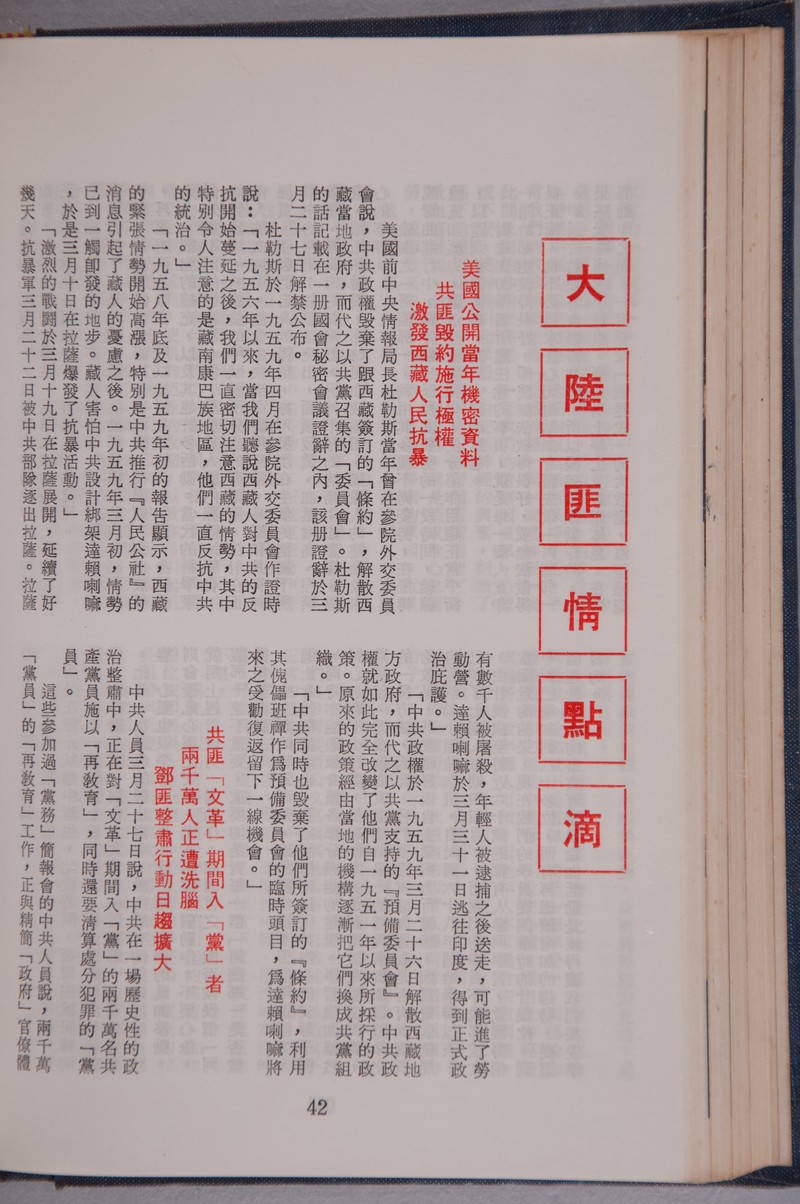 大陸匪情點滴
美國公開當年機密資料
共匪毀約施行極權
激發西藏人民抗暴
美國前中央情報局長杜勒斯當年曾在參院外交委員
會說，中共政權毀棄了跟西藏簽訂的「條約」，解散西
藏當地政府，而代之以共黨召集的「委員會」。杜勒斯
的話記載在一册國會秘密會議證辭之內，該册證辭於三
月二十七日解禁公布。
杜勒斯於一九五九年四月在參院外交委員會作證時
說：「一九五六年以來，當我們聽說西藏人對中共的反
抗開始蔓延之後，我們一直密切注意西藏的情勢，其中
特別令人注意的是藏南康巴族地區，他們一直反抗中共
的統治。」
「一九五八年底及一九五九年初的報告顯示，西藏
的緊張情勢開始高漲，特別是中共推行『人民公社』的
消息引起了藏人的憂慮之後。一九五九年三月初，情勢
已到一觸卽發的地步。藏人害怕中共設計綁架達賴喇嘛
，於是三月十日在拉薩爆發了抗暴活動。」
「激烈的戰鬪於三月十九日在拉薩展開，延續了好
幾天。抗暴軍三月二十二日被中共部隊逐出拉薩。拉薩
有數千人被屠殺，年輕人被逮捕之後送走，可能進了勞
動營。達賴喇嘛於三月三十一日逃往印度，得到正式政
治庇護。」
「中共政權於一九五九年三月二十六日解散西藏地
方政府，而代之以共黨支持的『預備委員會』。中共政
權就如此完全改變了他們自一九五一年以來所採行的政
策。原來的政策經由當地的機構逐漸把它們換成共黨組
織。」
「中共同時也毀棄了他們所簽訂的『條約』，利用
其傀儡班禪作爲預備委員會的臨時頭目，爲達賴喇嘛將
來之受勸復返留下一線機會。」
共匪「文革」期間入「黨」者
兩千萬人正遭洗腦
鄧匪整肅行動日趨擴大
中共人員三月二十七日說，中共在一場歷史性的政
治整肅中，正在對「文革」期間入「黨」的兩千萬名共
產黨員施以「再敎育」，同時還要淸算處分犯罪的「黨
員」。
這些參加過「黨務」簡報會的中共人員說，兩千萬
「黨員」的「再敎育」工作，正與精簡「政府」官僚體
42